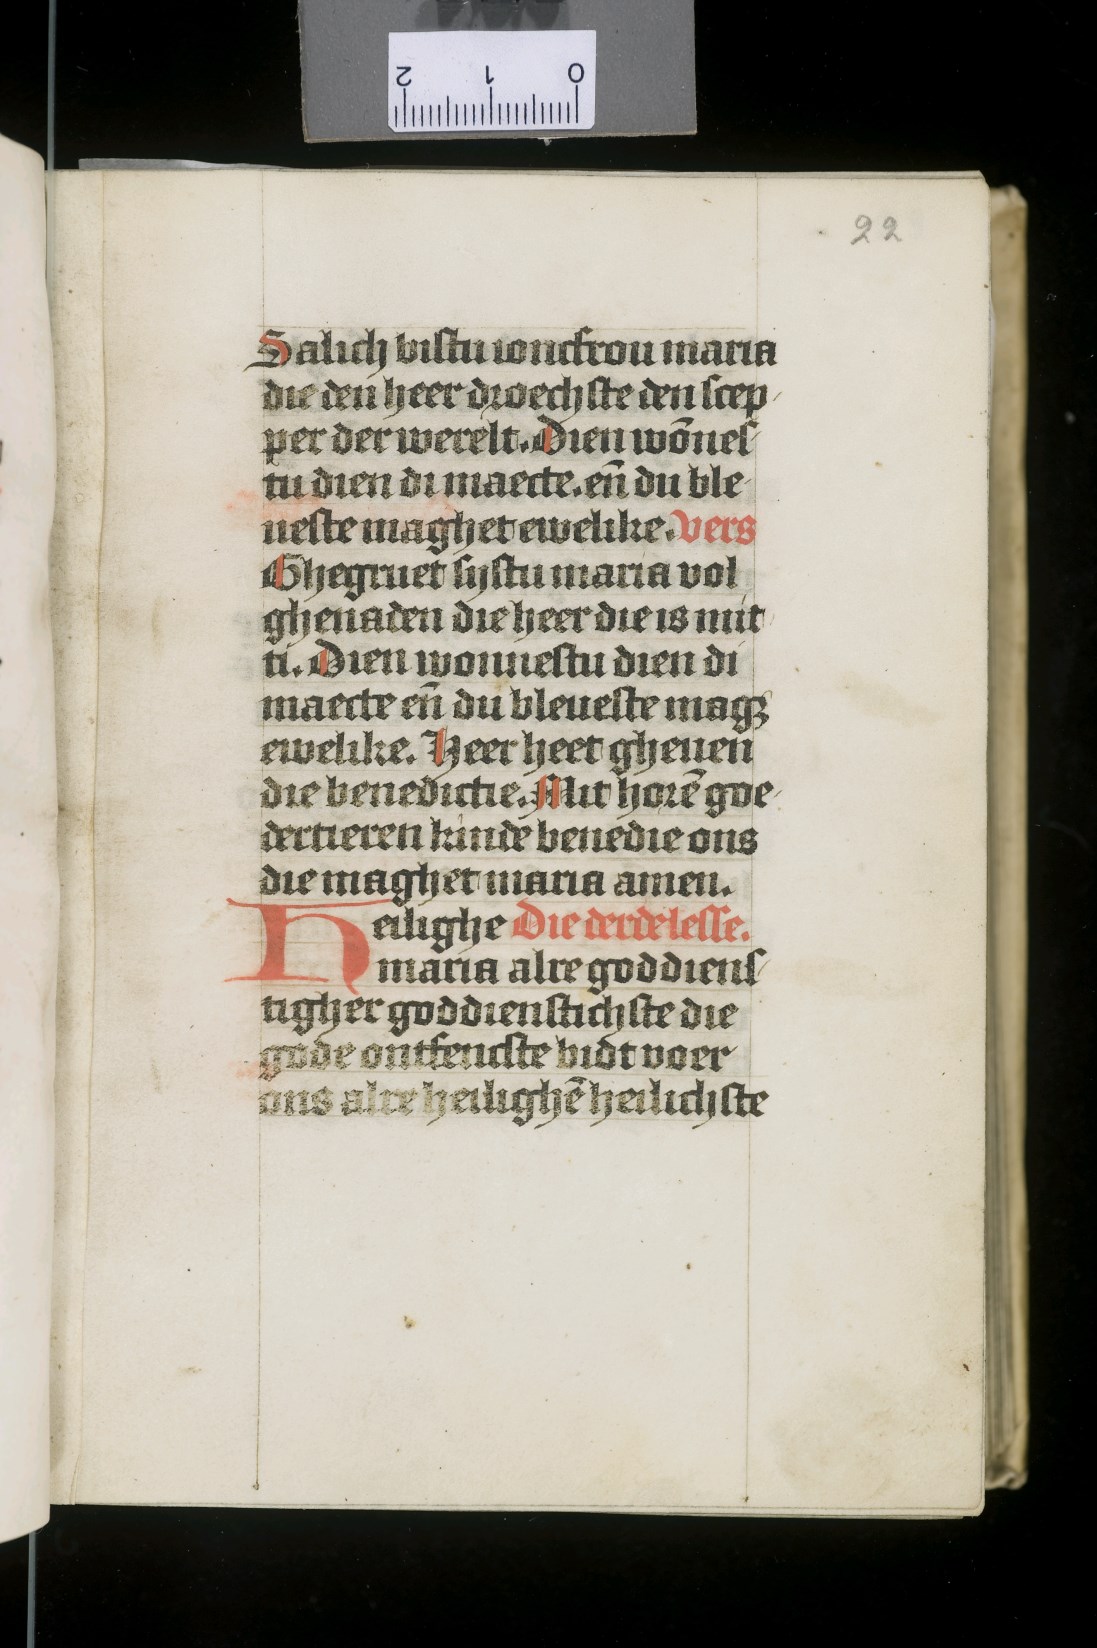 0 1 2
22
Salich bistu ioncfrou maria
die den heer droechste den scep
per der werelt. Dien wōnes
tu dien di maecte. eñ du ble
ueste maghet ewelike. vers
Ghegruet systu maria vol
ghenaden die heer die is mit
ti. Dien wonnestu dien di
maecte eñ du bleueste magꝫ
ewelike. Heer heet gheuen
die benedictie. Mit horē goe
dertieren kinde benedie ons
die maghet maria amen.
Heilighe Die derde lesse.
maria alre goddiens
tigher goddienstichste die
gode ontfencste bidt voer
ons alre heilighē heilichste